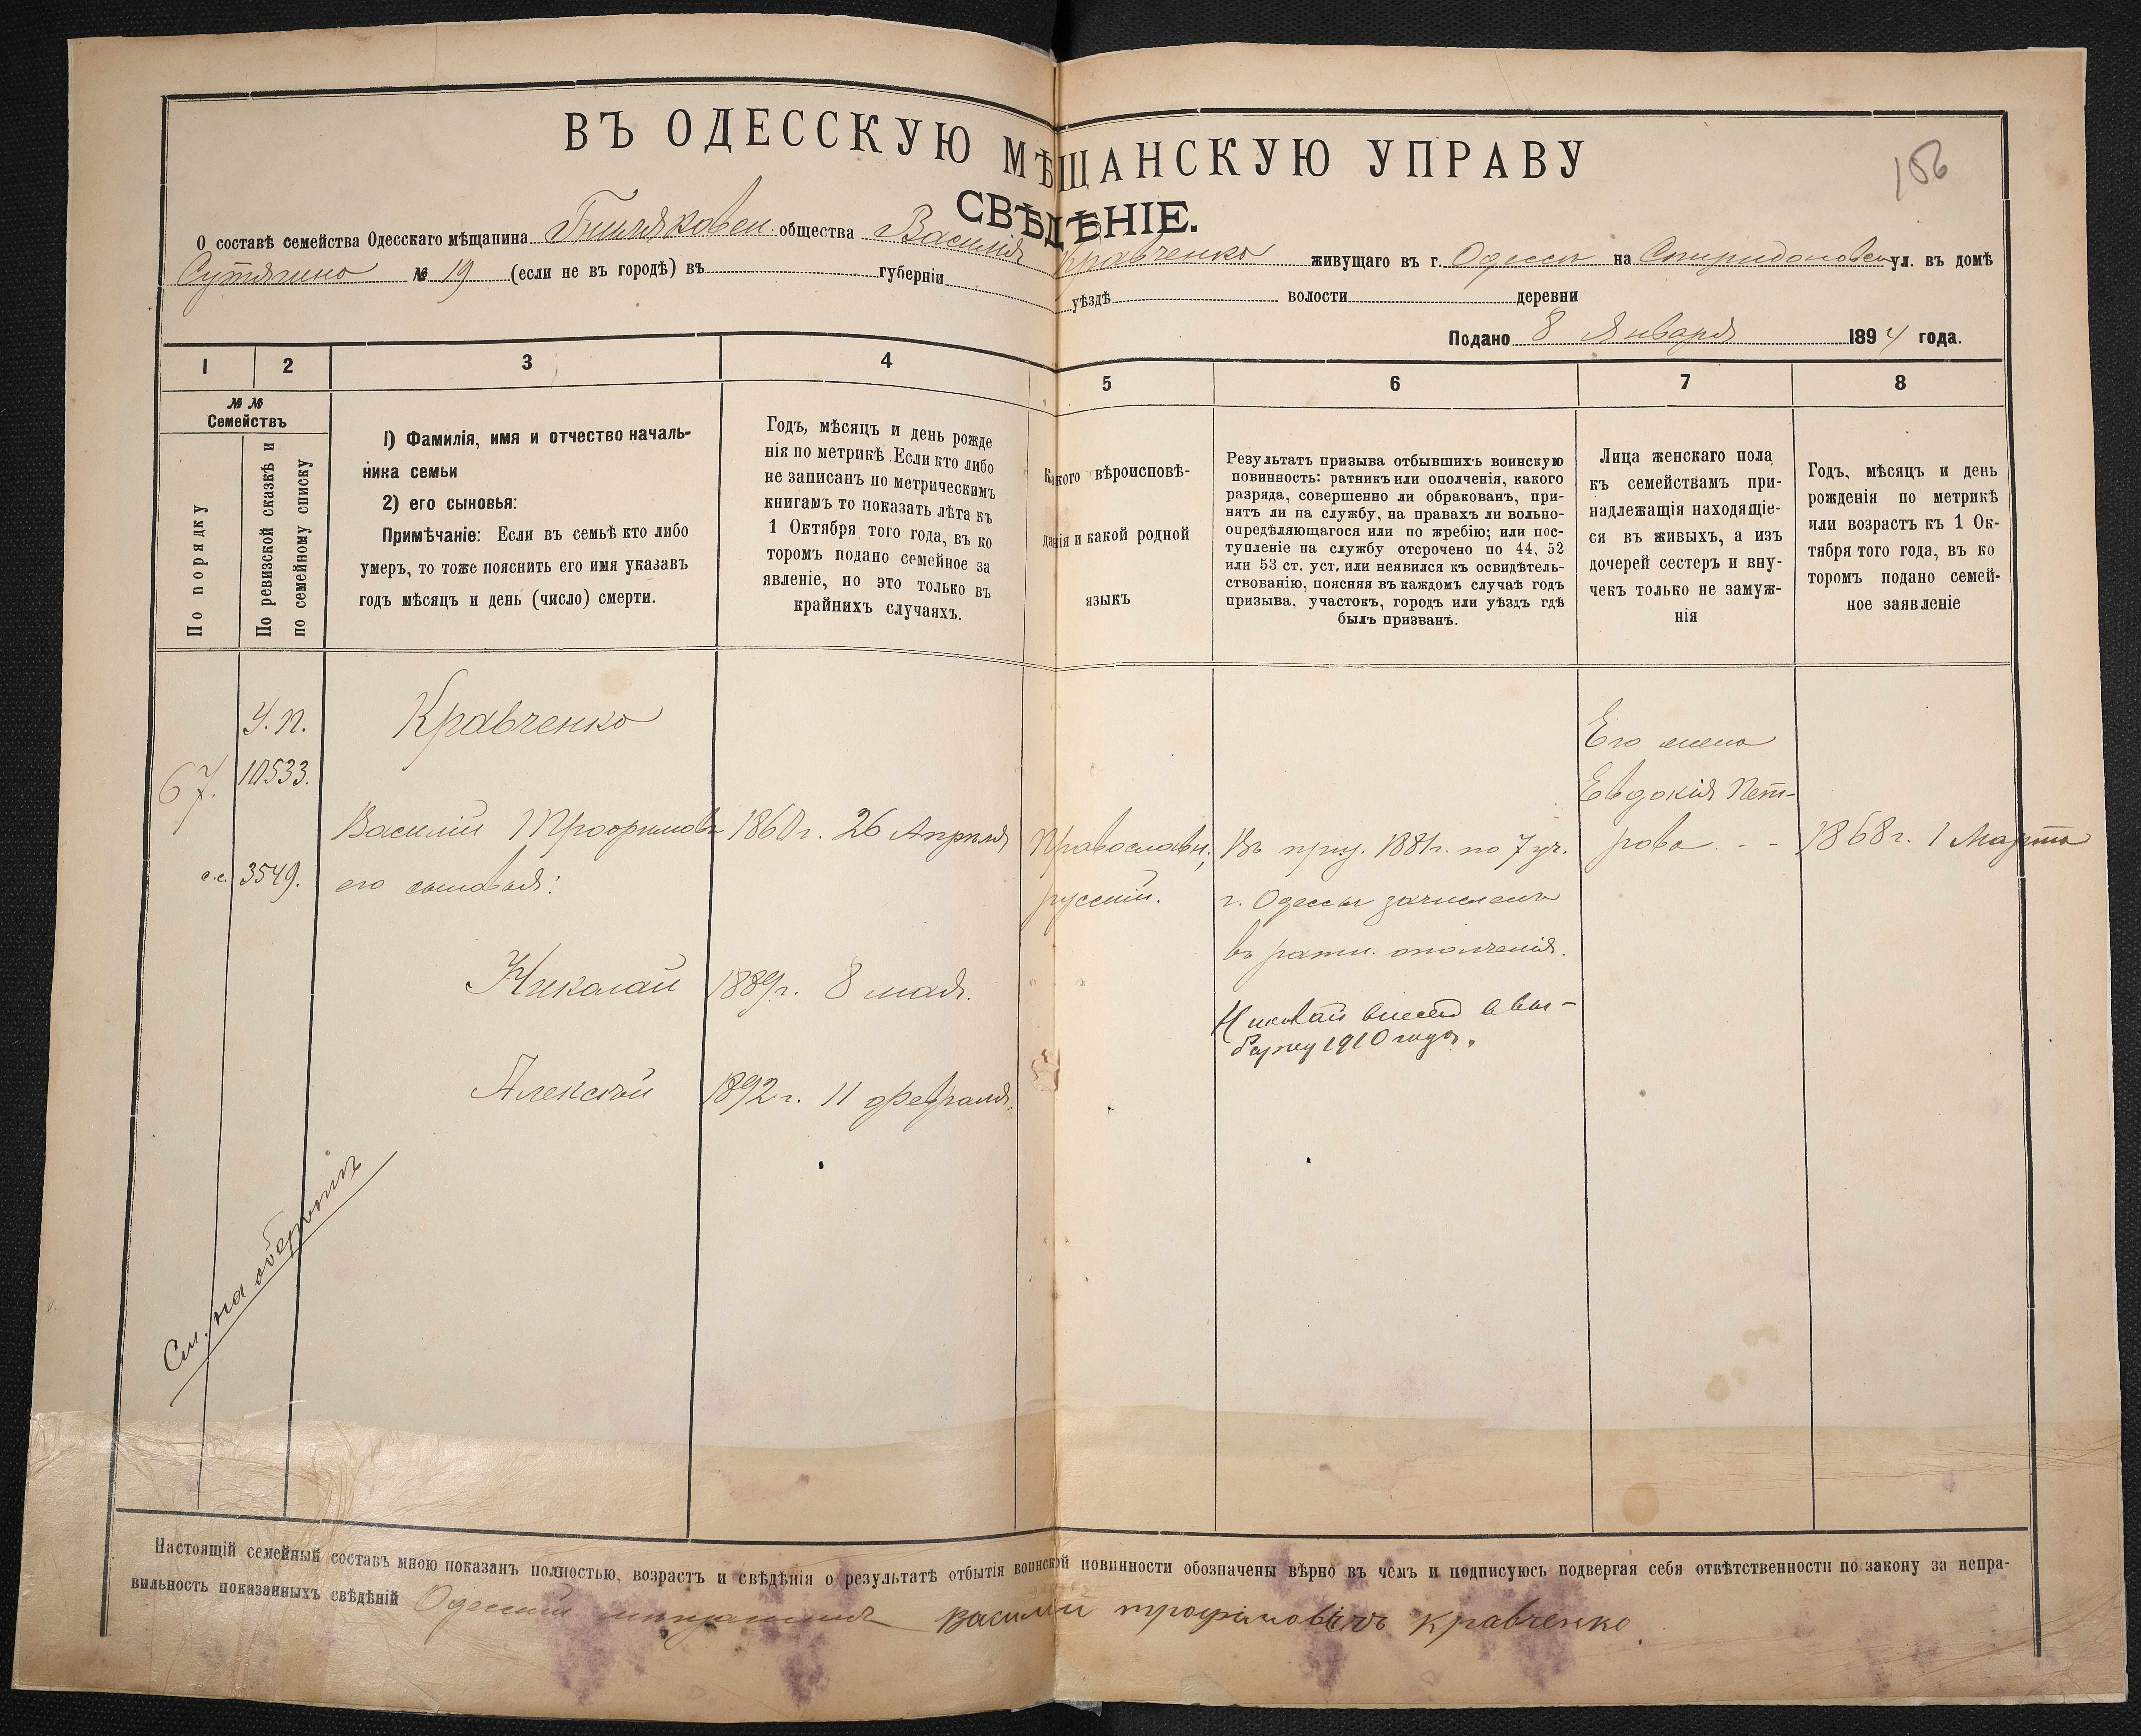 ВЪ ОДЕССКУЮ МѢЩАНСКУЮ УПРАВУ
156
СВѢДѢНІЕ.
О составѣ семейства Одесскаго мѣщанина общества Василія Кравченко живущаго въ г. Одессѣ на Спиридоновск ул. въ домѣ
Сутягина № 19 (если не въ городѣ) въ губерніи уѣздѣ волости деревни
Подано 8 Января 1894 года.
1 2 3 4 5 6 7 8
№ №
Семействъ
По порядку
По ревизской сказкѣ и
по семейному списку
1) Фамилія, имя и отчество началь-
ника семьи
2) его сыновья:
Примѣчаніе: Если въ семьѣ кто либо
умеръ, то тоже пояснить его имя указавъ
годъ мѣсяцъ и день (число) смерти.
Годъ, мѣсяцъ и день рожде
нія по метрикѣ Если кто либо
не записанъ по метрическимъ
книгамъ то показать лѣта къ
1 Октября того года, въ ко
торомъ подано семейное за
явленіе, но это только въ
крайнихъ случаяхъ.
Какого вѣроисповѣ-
данія и какой родной
языкъ
Результатъ призыва отбывшихъ воинскую
повинность: ратникъ или ополченія, какого
разряда, совершенно ли обракованъ, при-
нятъ ли на службу, на правахъ ли вольно-
опредѣляющагося или по жребію; или пос-
тупленіе на службу отсрочено по 44, 52
или 53 ст. уст. или неявился къ освидѣтель-
ствованію, поясняя въ каждомъ случаѣ годъ
призыва, участокъ, городъ или уѣздъ гдѣ
былъ призванъ.
Лица женскаго пола
къ семействамъ при-
надлежащія находящіе-
ся въ живыхъ, а изъ
дочерей сестеръ и вну-
чекъ только не замуж-
нія
Годъ, мѣсяцъ и день
рожденія по метрикѣ
или возрастъ къ 1 Ок-
тября того года, въ ко
торомъ подано семей-
ное заявленіе
67.
У. п.
10533.
с.с. 3549.
Кравченко
Василій Трофимовъ 1860 г. 26 Апрѣля
его сыновья:
Николай 1889 г. 8 мая.
Алексѣй 1892 г. 11 февраля.
Православн.,
русскій.
Въ приз. 1881 г. по 7 уч.
г. Одессы зачисленъ
въ ратн. ополченія.
Николай внесенъ в вы-
борку 1910 года.
Его жена
Евдокія Пет-
рова - - 1868 г. 1 Марта
См. на оборотѣ
Настоящій семейный составъ мною показанъ полностью, возрастъ и свѣдѣнія о результатѣ отбытія воинской повинности обозначены вѣрно въ чемъ и подписуюсь подвергая себя отвѣтственности по закону за непра-
вильность показанныхъ свѣдѣній Одесскій мѣщанинъ Василий трофимовичъ кравченко.